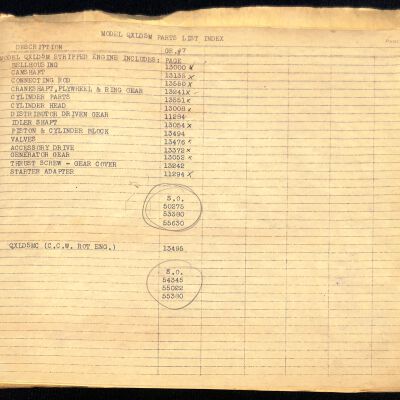 MODEL QXLD5M PARTS LIST INDEX
DESCRIPTION GR.#7
MODEL QXLD5M STRIPPED ENGINE INCLUDES: PAGE
BELLHOUSING 13000 x
CAMSHAFT 13135 x
CONNECTING ROD 13550 x
CRANKSHAFT, FLYWHEEL & RING GEAR 13241 x
CYLINDER PARTS 13551 x
CYLINDER HEAD 13008 x
DISTRIBUTOR DRIVEN GEAR 11284
IDLER SHAFT 13054 x
PISTON & CYLINDER BLOCK 13494
VALVES 13476 x
ACCESSORY DRIVE 13372 x
GENERATOR GEAR 13052 x
THRUST SCREW - GEAR COVER 13242
STARTER ADAPTER 11294 x
S.O.
50275
53390
55630
QXLD5MC (C.C.W. ROT ENG.) 13495
S.O.
54345
55022
55390